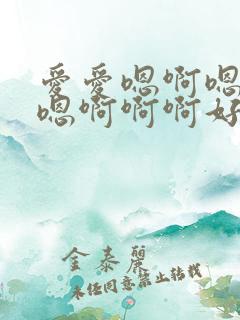 爱爱嗯啊嗯
嗯啊啊啊好
金泰丽
未经同意禁止转载